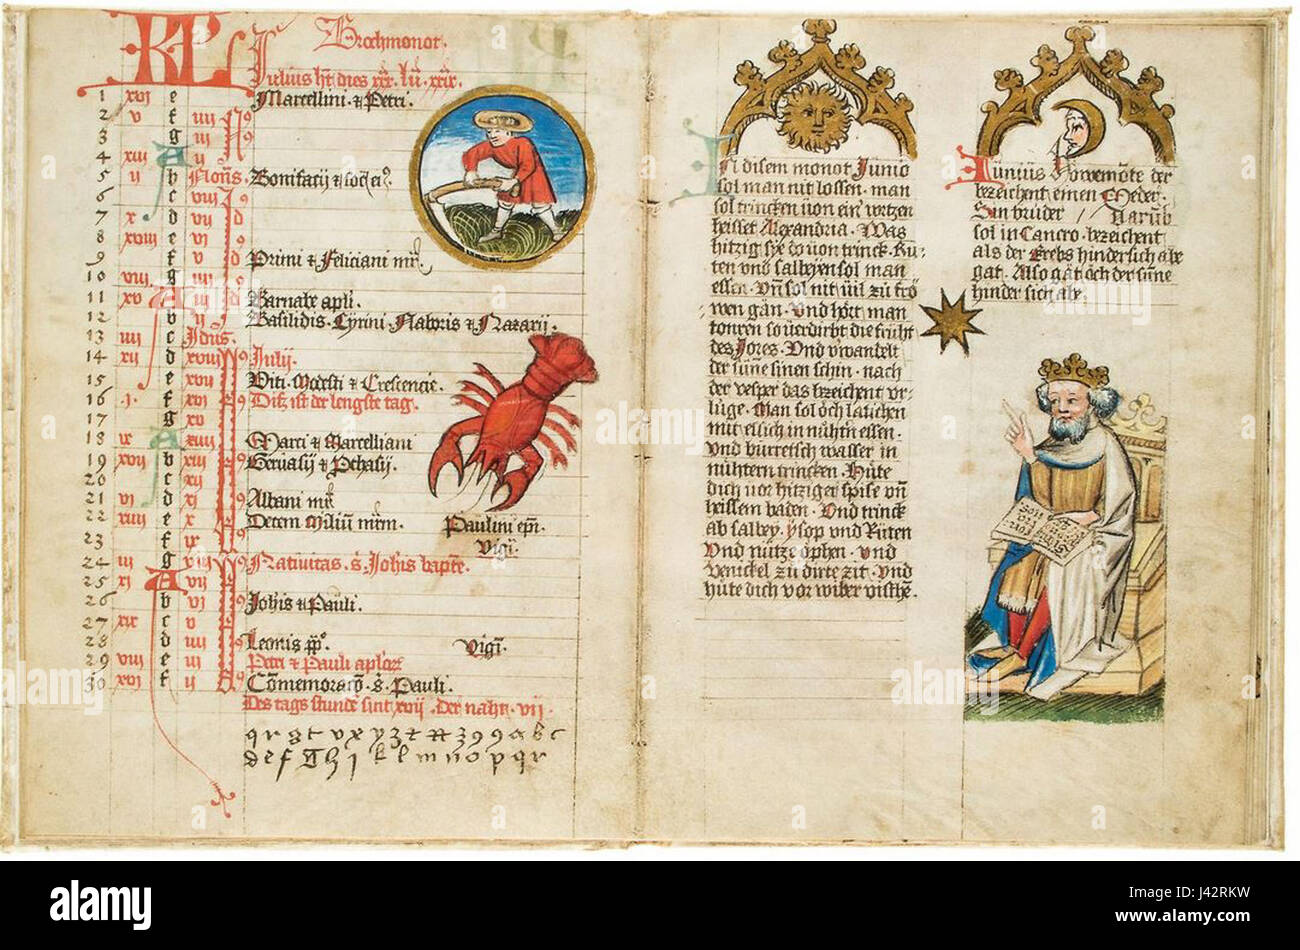 KL Brochmonot.
Iulius ht dies xxx. lu. xxix.
1 xvi e Marcellini · & Petri.
2 v f iiii
3 g iii
4 xiii A ii
5 ii b Non9. Bonifacij & socei9.
6 c viii
7 x d vii
8 xviii e vi
9 f v Primi & Feliciani mr.
10 viii g iiii
11 xv A iii Barnabe apli.
12 b ii Basilidis. Cyrini. Naboris & Nazarij.
13 iiii c Idus.
14 xii d xviii Iulij.
15 e xvii Viti. Modesti & Crescencie.
16 .i. f xvi Dis ist der lengste tag.
17 g xv
18 ix A xiiii Marci & Marcelliani
19 xvii b xiii Geruasij & Pthasij.
20 c xii
21 vi d xi Albani mr.
22 xiiii e x Decem miliu mrm. Paulini epi.
23 f ix Vigi.
24 iii g viii Natiuitas. s. Johis bapte.
25 xi A vii
26 b vi Johis & Pauli.
27 xix c v
28 d iiii Leonis pp. Vigi.
29 viii e iii Petri & Pauli aplor
30 xvi f ii Comemoraco. s. Pauli.
Des tags stunde sint xvij. der naht. vij.
q r s t v x y z & 3 9 9 a b c
d e f g h i k l m n o p q r
In disem monot Junio
sol man nit lossen. man
sol trincken von ein wrtzen
heisset Alexandria. Was
hitzig sye do von trinck. Ru-
ten vnd salbeyen sol man
essen. Vn sol nit vil zu frö
wen gän. Vnd hört man
tonren so verdirbt die früht
des Jores. Vnd vwandelt
der sunne sinen schin. nach
der vesper das bezeichent vr-
luge. Man sol öch latichen
mit essich in nühtn essen.
Vnd burretsch wasser in
nühtern trincken. Hüte
dich vor hitziger spise vn
heissem baden. Vnd trinck
ab salbey. ysop vnd Rüten
Vnd nütze öphen. vnd
Venickel zu dirte zit. Vnd
hüte dich vor wiber vische.
Iunius bezeichent einen Meder.
Sin bruder / Darub
sol in Cancro. bezeichent
als der Krebs hinder sich abe
gat. Also gät öch der sunne
hinder sich abe.
alamy
Image ID: J42RKW
www.alamy.com